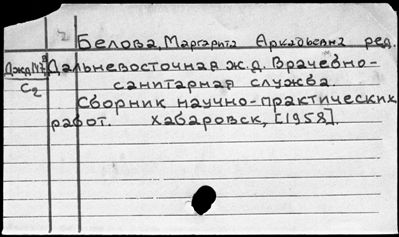 Белова, Маргарита Аркадьевна ред.
Дальневосточная ж.д. Врачебно-
С2 санитарная служба.
Сборник научно-практических
работ. Хабаровск, [1958].